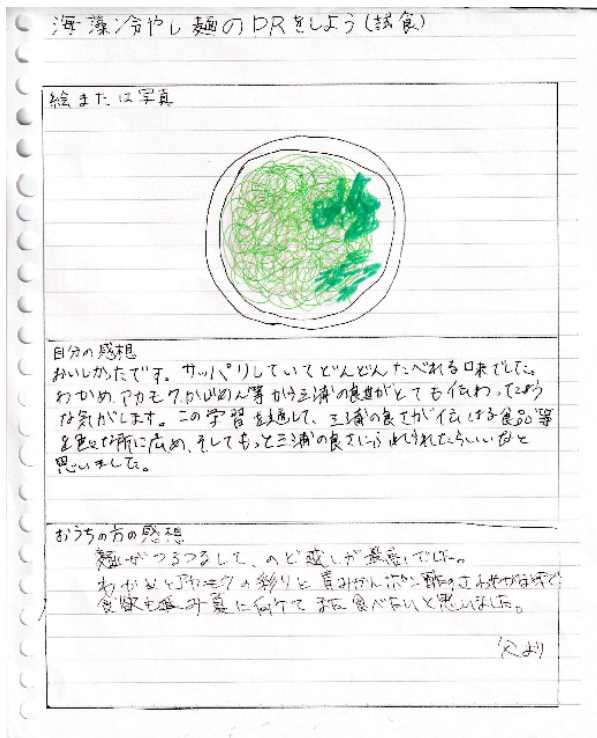 海藻冷やし麺のPRをしよう(試食)
絵または写真
自分の感想
おいしかったです。サッパリしていてどんどんたべれる味でした。
わかめ、アカモク、かじめん等から三浦の良さがとても伝わってくるよう
な気がします。この学習を通して、三浦の良さが伝わる食品等
を色々な所に広め、そしてもっと三浦の良さに られたらいいなと
思いました。
おうちの方の感想
麺がつるつるして、のど越しが最高でした。
わかめとアカモクの彩りと青みかんポン酢のさわやかな で
食欲も 夏に向けてまた食べたいと思いました。
父より